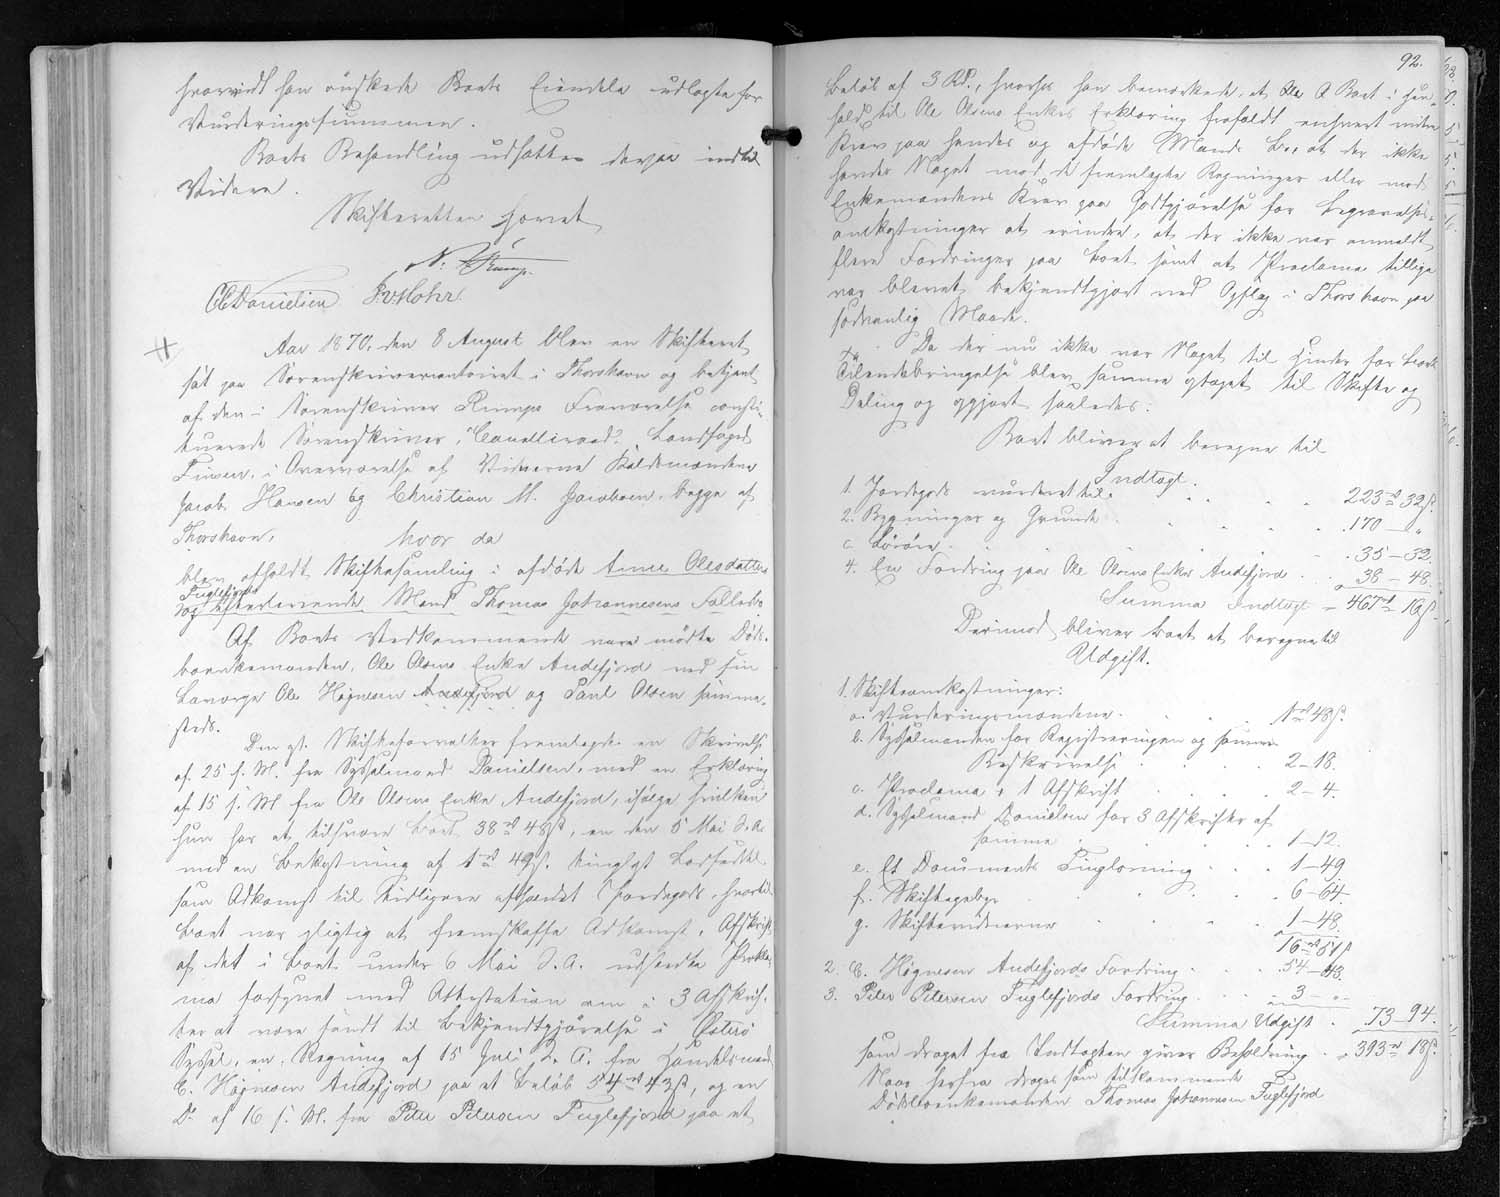 hvorvidt han ønskede Boets Eiendele udlagte for
Vurderingssummen.
Boets Behandling udsattes derpaa indtil
Videre.
Skifteretten hævet
N. Rump.
CC Danielsen P v Mohr
Aar 1870, den 8 August blev en Skifteret
sat paa Sorenskrivercontoiret i Thorshavn og betjent
af den i Sorenskriver Rumps Fraværelse consti-
tuerede Sorenskriver, Cancelliraad Landfoged
Finsen, i Overværelse af Vidnerne Kaldsmændene
Jacob Hansen og Christian M. Jacobsen, begge af
Thorshavn,
hvor da
blev afholdt Skiftesamling i afdøde Anne Olesdatters
Fuglefjord
og efterlevende Mand Thomas Johannesens Fællesbo
Af Boets Vedkommende vare mødte Døds-
boenkemanden, Ole Olsens Enke Andefjord med sin
Lavværge Ole Høgnesen Andefjord og Paul Olsen samme-
steds.
Den cst. Skifteforvalter fremlagde en Skrivelse
af 25 f. M. fra Sysselmand Danielsen, med en Erklæring
af 15 f. M. fra Ole Olsens Enke Andefjord, ifølge hvilken
hun har at tilsvare Boet 38 rd 48 ß, en den 5 Mai d. A.
med en Bekostning af 1 rd 49 ß. tinglyst Lodseddel
som Adkomst til tidligere afhændet Jordegods, hvortil
Boet var pligtig at fremskaffe Adkomst, Afskrift
af det i Boet under 6 Mai d. A. udstedte Prokla-
ma forsynet med Attestation om i 3 Afskrif-
ter at være sendt til Bekjendtgjørelse i Østerø
Syssel, en Regning af 15 Juli d. A. fra Handelsmand
C. Høgnesen Andefjord paa et Beløb 54 rd 43 ß, og en
Do af 16 f. M. fra Peter Petersen Fuglefjord paa et
92.
Beløb af 3 Rd., hvorhos han bemærkede, at Boet i Hen-
hold til Ole Olsens Enkes Erklæring frafaldt enhvert videre
Krav paa hendes og afdøde Mands Bo, at der ikke
havdes Noget mod de fremlagte Regninger eller mod
Enkemandens Krav paa Godtgjørelse for Begravelses-
omkostninger at erindre, at der ikke var anmeldt
flere Fordringer paa Boet samt at Proclama tillige
var blevet bekjendtgjort ved Opslag i Thorshavn paa
sædvanlig Maade.
Da der nu ikke var Noget til Hinder for Boets
Tilendebringelse blev samme optaget til Skifte og
Deling og opgjort saaledes:
Boet bliver at beregne til
Indtægt.
1. Jordegods vurderet til 223 rd 32 ß.
2. Bygninger og Grunde 170 — "
c. Løsøre 35 — 32.
4. En Fordring paa Ole Olsens Enke Andefjord 38 — 48.
Summa Indtægt 467 rd 16 ß.
Derimod bliver Boet at beregne til
Udgift.
1. Skifteomkostninger:
a. Vurderingsmændene 1 rd 48 ß.
b. Sysselmanden for Registreringen og sammes
Beskrivelse 2 — 18.
c. Proclama, 1 Afskrift 2 — 4.
d. Sysselmand Danielsen for 3 Afskrifter af
samme 1 — 12.
e. Et Documents Tinglæsning 1 — 49
f. Skiftegebyr 6 — 64
g. Skiftevidnerne 1 — 48.
16 rd 51 ß
2. C. Høgnesen Andefjords Fordring 54 — 43.
3. Peter Petersen Fuglefjords Fordring 3 — "
Summa Udgift 73 — 94.
som draget fra Indtægten giver Beholdning 393 rd 18 ß.
Naar herfra drages som tilkommende
Dødsboenkemanden Thomas Johannesen Fuglefjord